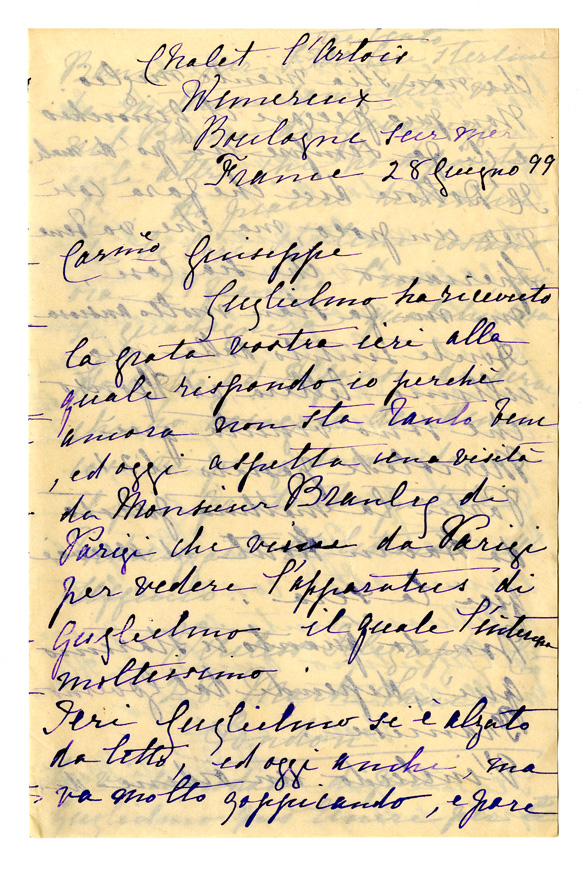 Chalet l'Artois
Wimereux
Boulogne sur mer
France 28 Giugno 99
Carmo Giuseppe
Guglielmo ha ricevuto
la grata vostra ieri alla
quale rispondo io perchè
ancora non sta tanto bene
, ed oggi aspetta una visita
da Monsieur Branley di
Parigi che viene da Parigi
per vedere l'apparatus di
Guglielmo il quale l'interessa
moltissimo.
Ieri Guglielmo si è alzato
da letto, ed oggi anche, ma
va molto zoppicando, e pare